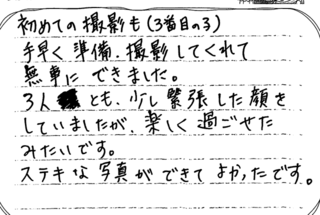 初めての撮影も(3番目の3)
手早く準備、撮影してくれて
無事にできました。
3人とも、少し緊張した顔を
していましたが、楽しく過ごせた
みたいです。
ステキな写真ができてよかったです。